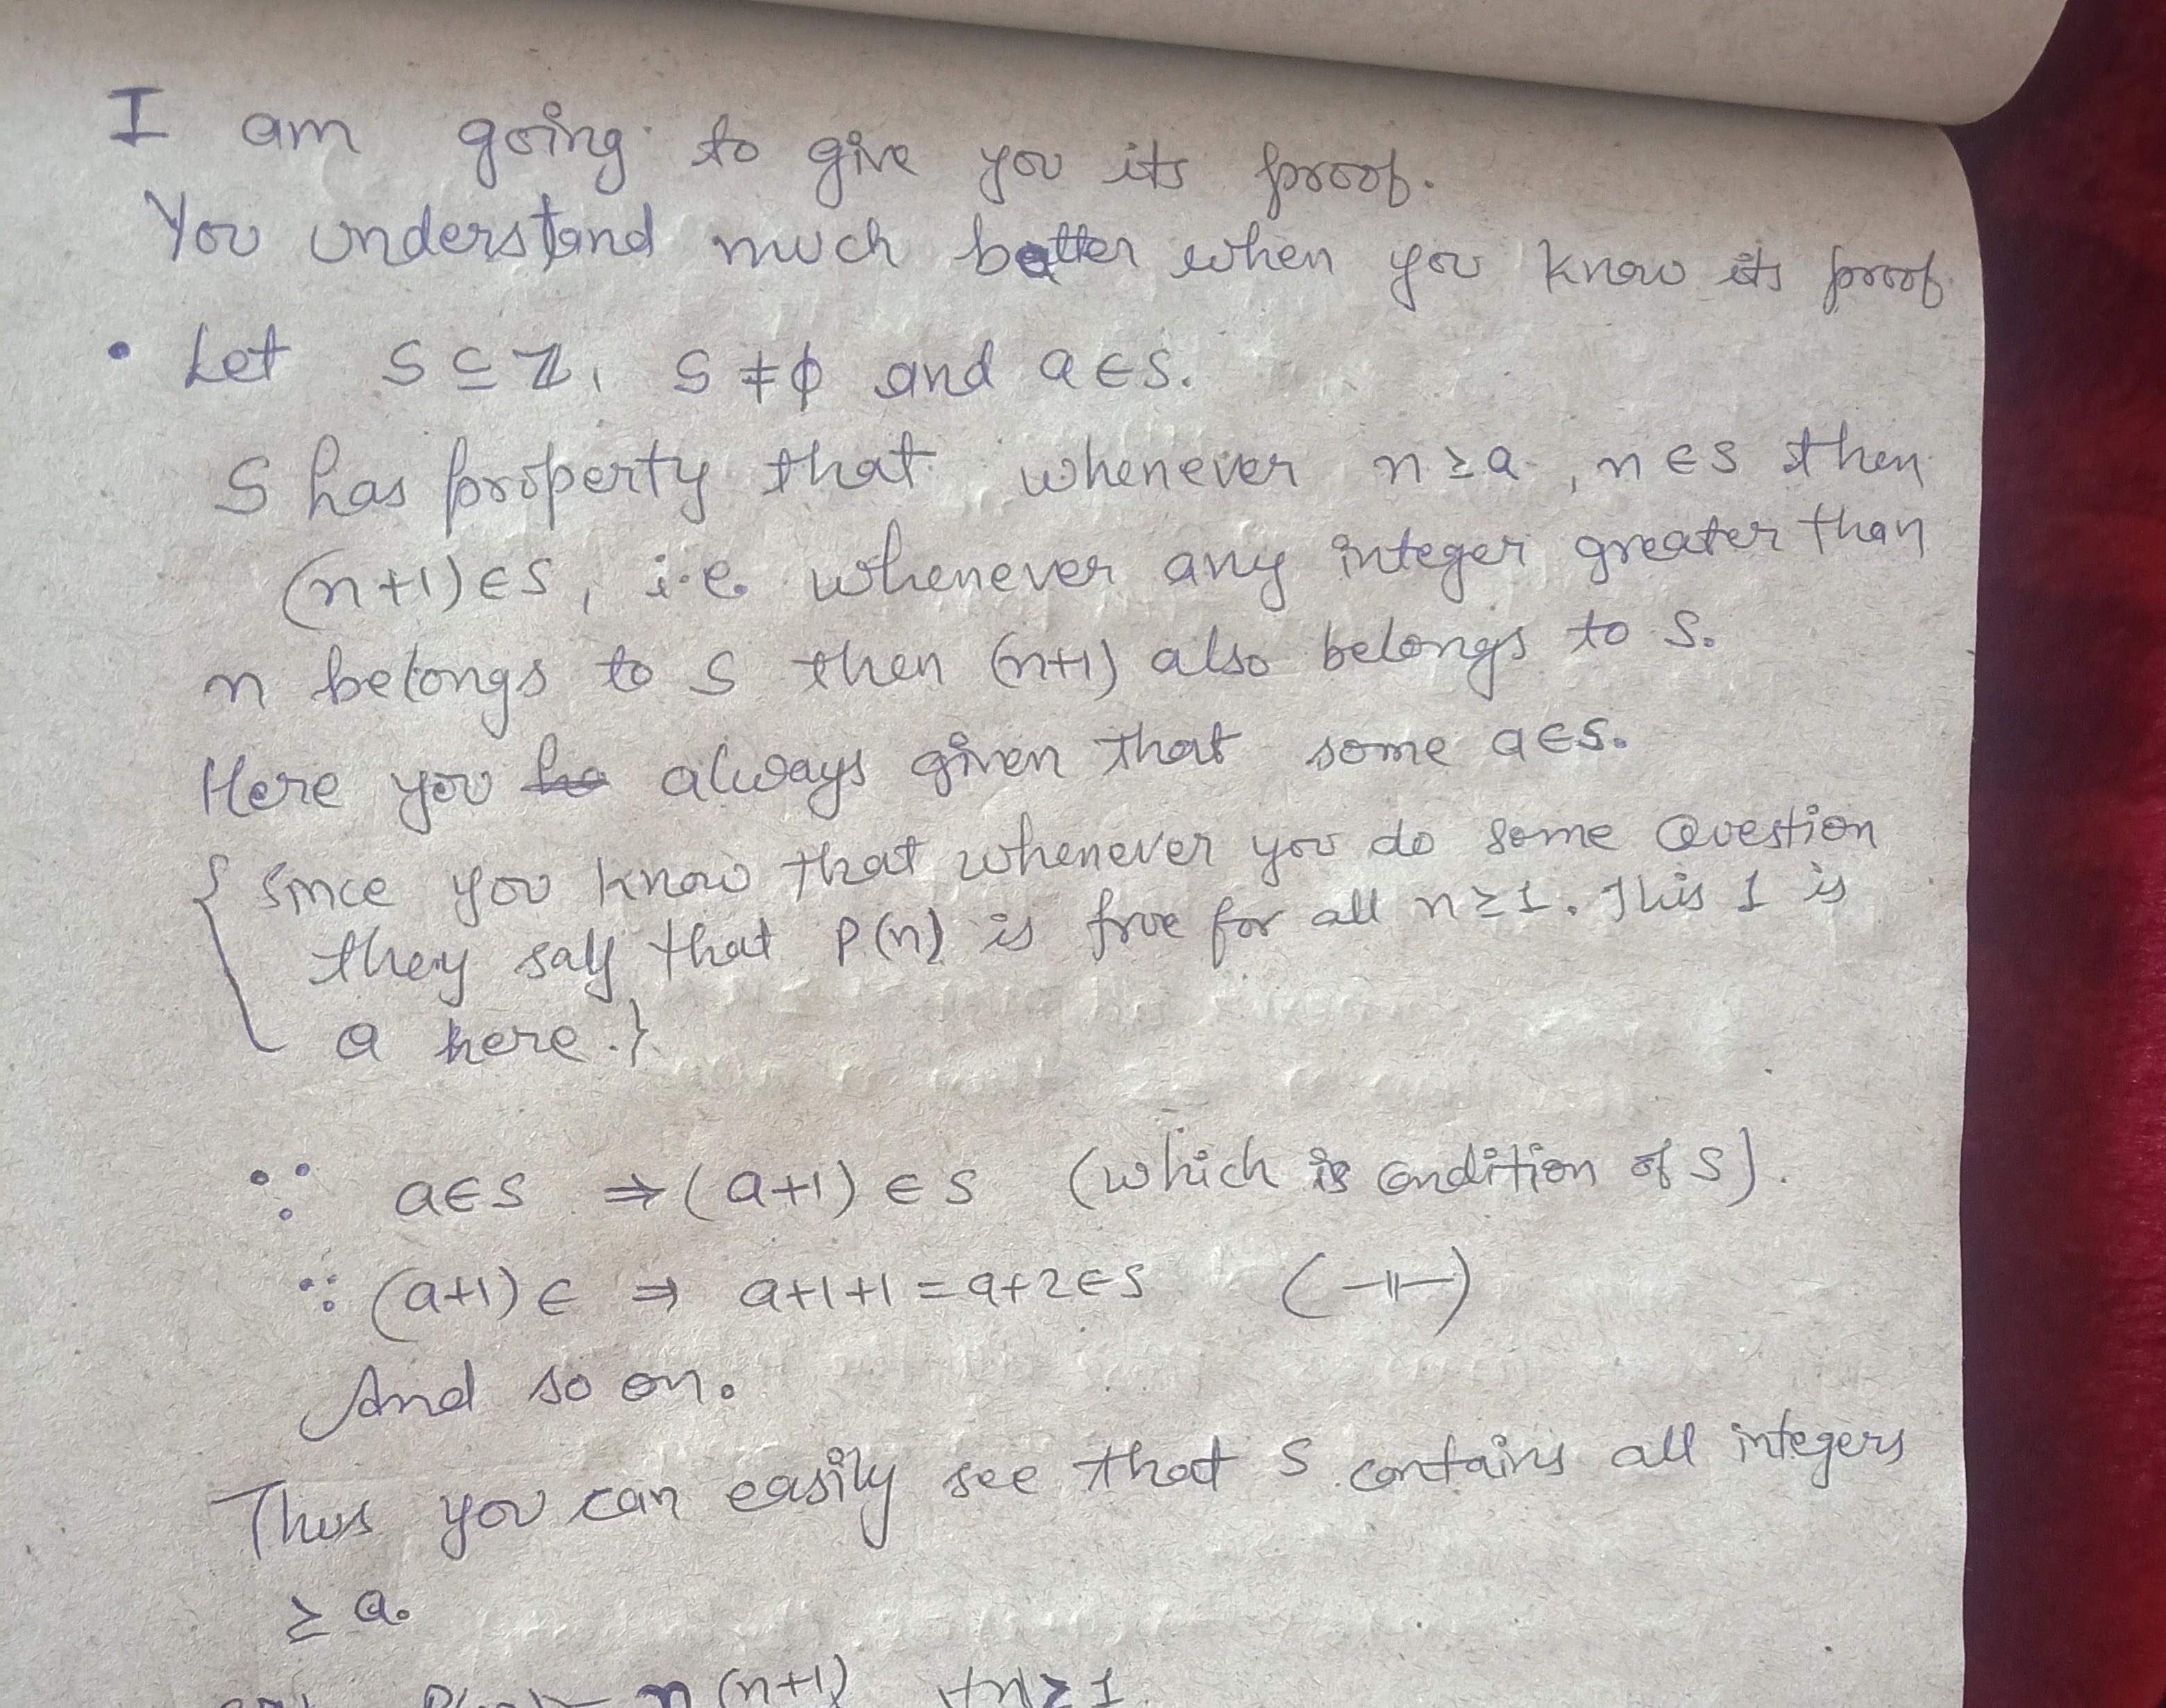 I am going to give you its proof.
You understand much better when you know its proof.
• Let S ⊆ ℤ, S ≠ ϕ and a ∈ S.
S has property that whenever n ≥ a, n ∈ S then
(n+1) ∈ S, i.e. whenever any integer greater than
n belongs to S then (n+1) also belongs to S.
Here you always given that some a ∈ S.
{ Since you know that whenever you do some Question
they say that P(n) is true for all n ≥ 1. This 1 is
a here.}
∵ a ∈ S ⇒ (a+1) ∈ S (which is condition of S).
∵ (a+1) ∈ ⇒ a+1+1 = a+2 ∈ S (—॥—)
And so on.
Thus you can easily see that S contains all integers
≥ a.
P(n) = n(n+1) ∀n ≥ 1.